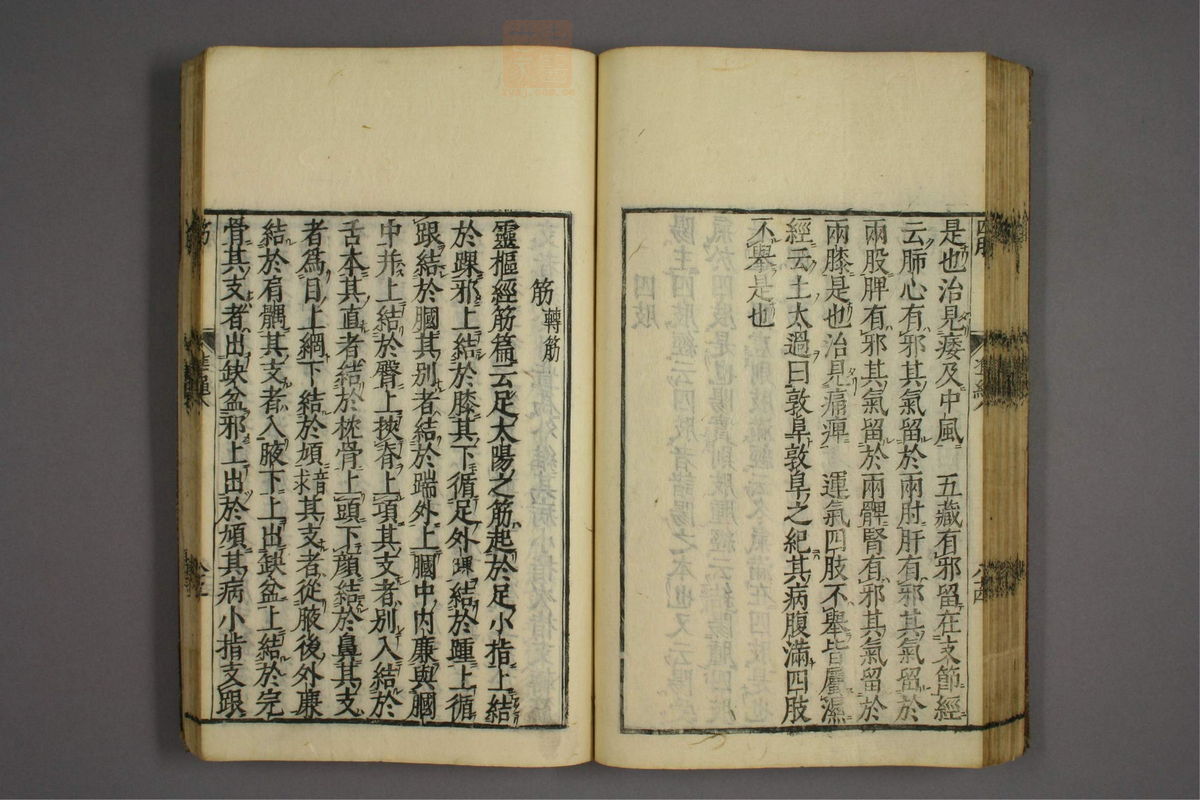 四肢
是也治見痿及中風　五藏有邪留在支節經
云肺心有邪其氣留於兩肘肝有邪其氣留於
兩股脾有邪其氣留於兩髀腎有邪其氣留於
兩膝是也治見痛痺　運氣四肢不舉皆屬濕
經云土太過曰敦阜敦阜之紀其病腹滿四肢
不舉是也
筋 轉筋
靈樞經筋篇云足太陽之筋起於足小指上結
於踝邪上結於膝其下循足外踝結於踵上循
跟結於膕其別者結於踹外上膕中內廉與膕
中并上結於臀上挾脊上項其支者別入結於
舌本其直者結於枕骨上頭下顏結於鼻其支
者為目上網下結於頄音求其支者從腋後外廉
結於肩髃其支者入腋下上出缺盆上結於完
骨其支者出缺盆邪上出於頄其病小指支跟
筋